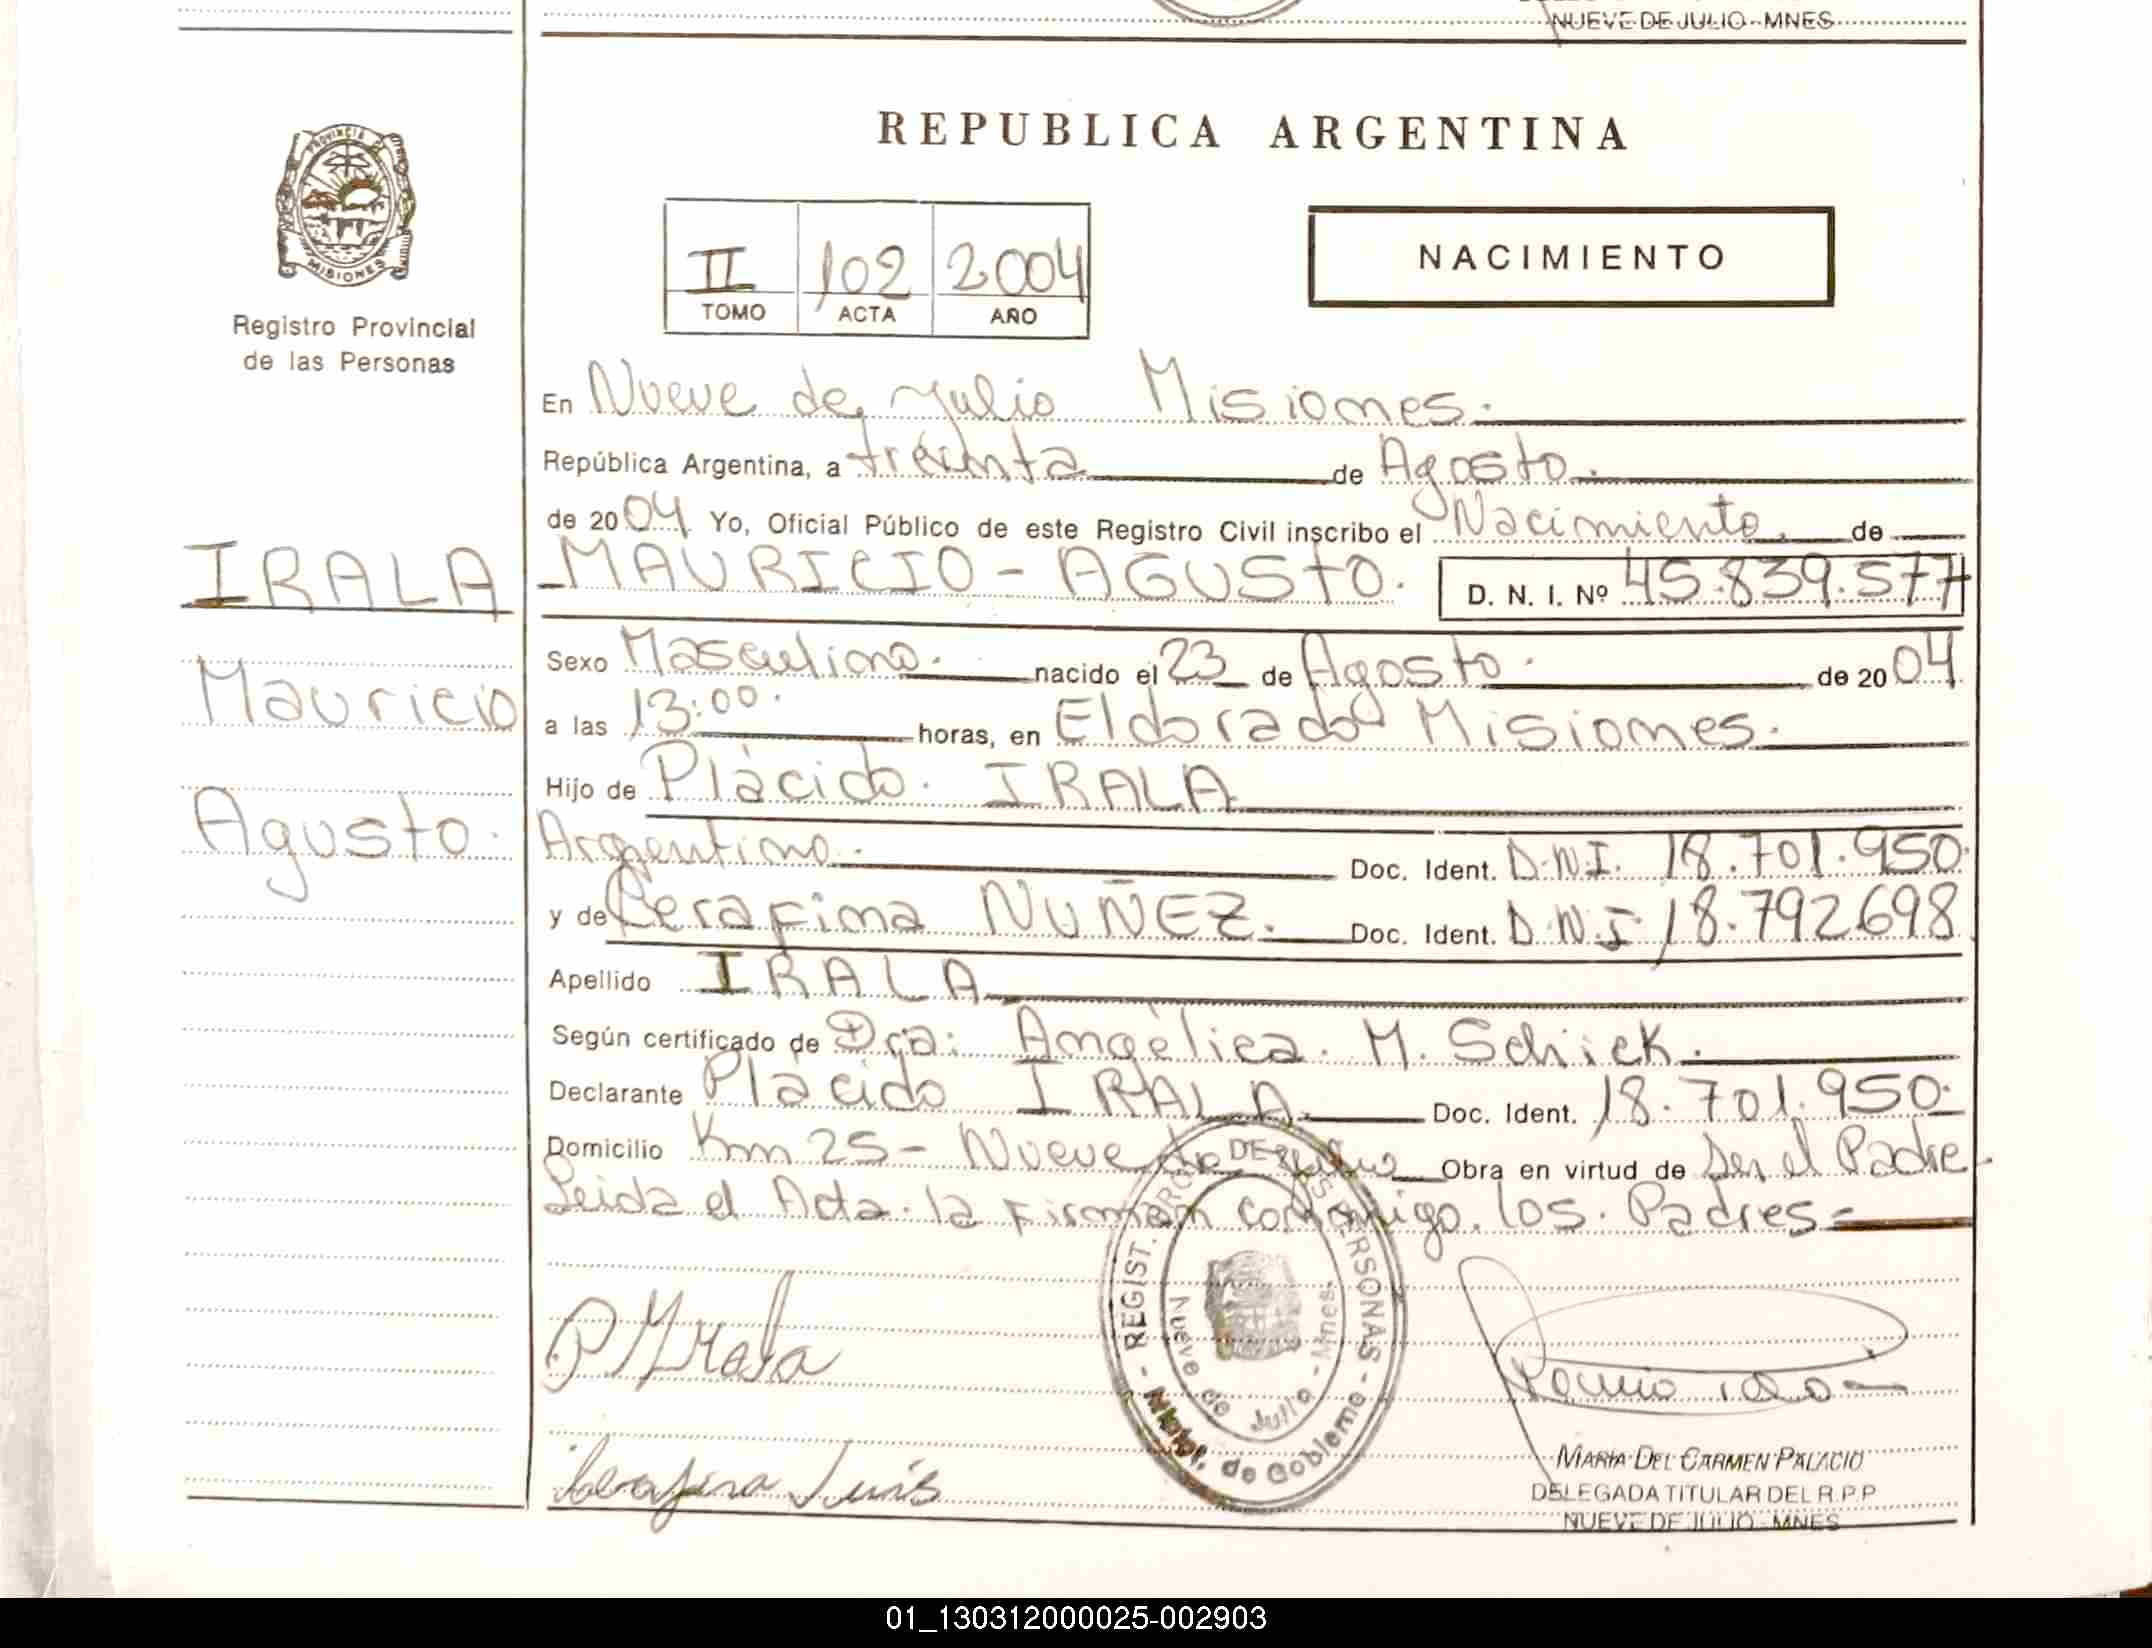 NUEVE DE JULIO - MNES
REPUBLICA ARGENTINA
PROVINCIA
MISIONES
Registro Provincial
de las Personas
II 102 2004
TOMO ACTA AÑO
NACIMIENTO
En Nueve de Julio Misiones.
República Argentina, a treinta de Agosto.
de 2004 Yo, Oficial Público de este Registro Civil inscribo el Nacimiento de
IRALA
Mauricio
Agusto.
MAURICIO - AGUSTO. D. N. I. Nº 45.839.577
Sexo Masculino. nacido el 23 de Agosto. de 2004
a las 13:00. horas, en Eldorado Misiones.
Hijo de Plácido. IRALA
Argentino. Doc. Ident. D.N.I. 18.701.950.
y de Serafina NUÑEZ. Doc. Ident. D.N.I 18.792698
Apellido IRALA
Según certificado de Dra: Angélica. M. Schick.
Declarante Plácido IRALA. Doc. Ident. 18.701.950.
Domicilio Km 25 - Nueve de Julio Obra en virtud de Ser el Padre
Leida el Acta. la Firman conmigo. los. Padres =
REGIST. PROV. DE LAS PERSONAS - Minist. de Gobierno -
Nueve de Julio - Mnes.
P Irala
MARIA DEL CARMEN PALACIO
DELEGADA TITULAR DEL R.P.P
NUEVE DE JULIO - MNES
01_130312000025-002903